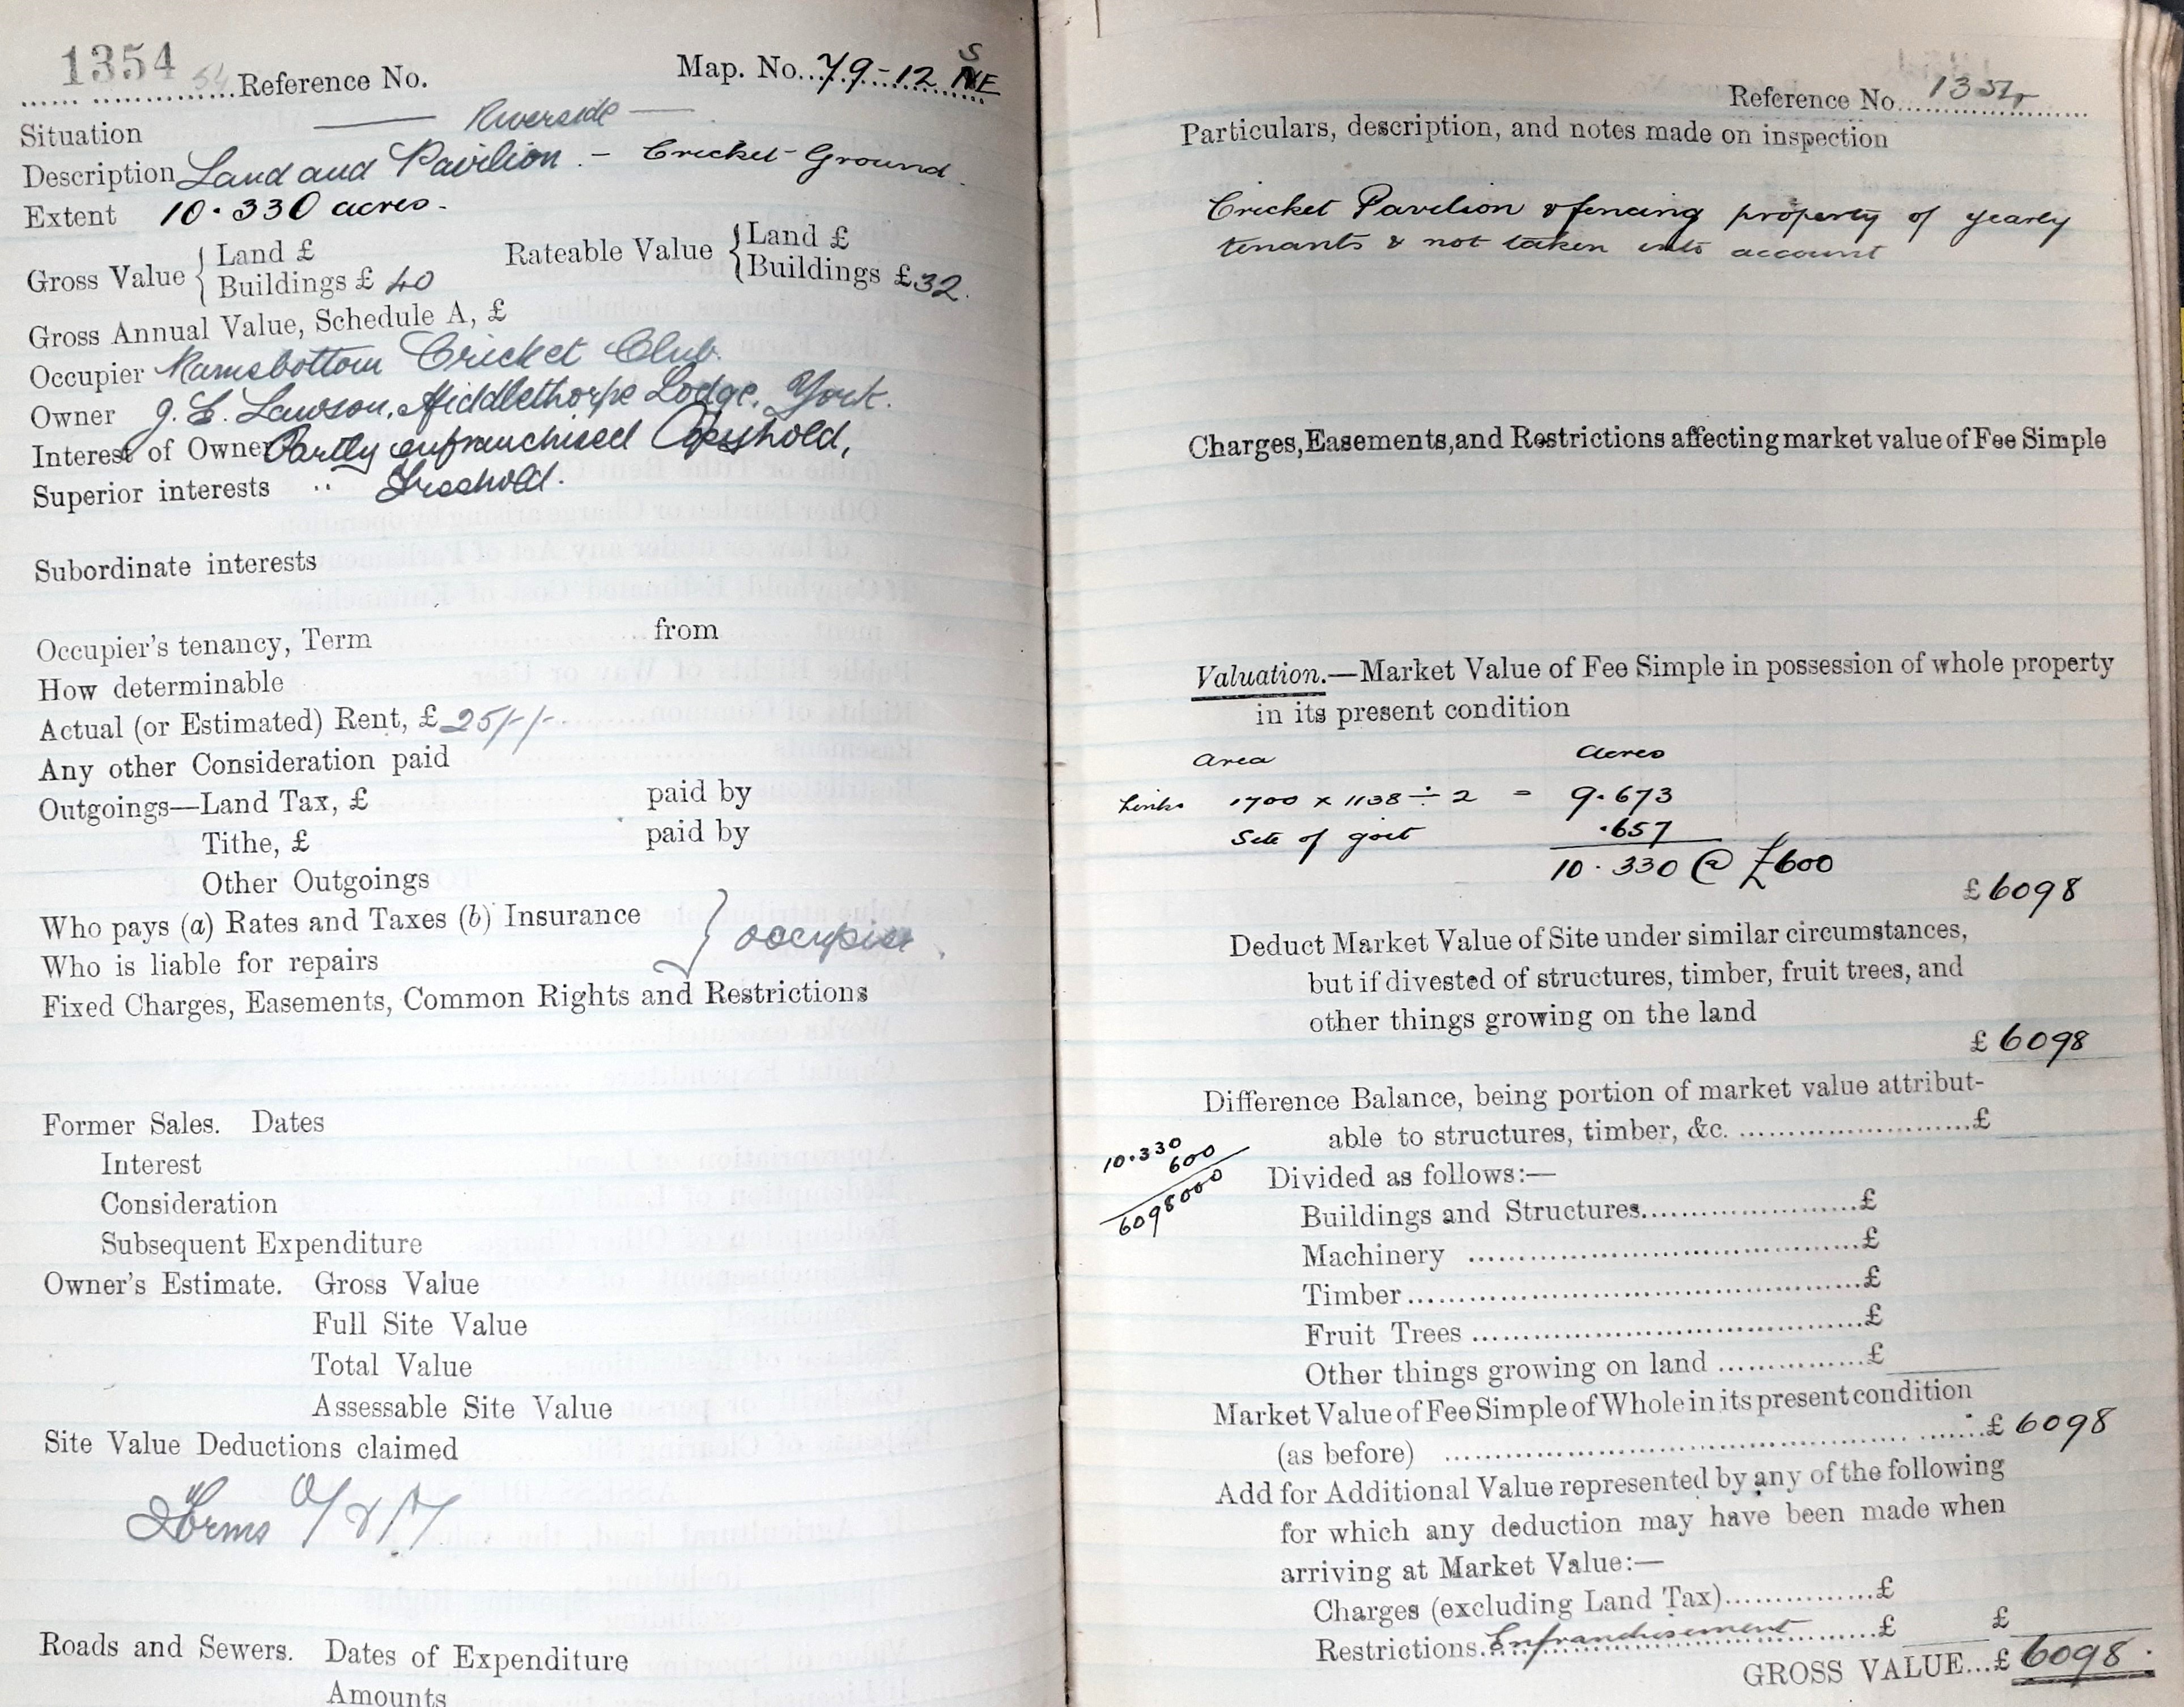 1354
Reference No.
Map. No. 79-12 S NE
Situation Riverside
Description Land and Pavilion. - Cricket Ground.
Extent 10.330 acres.
Gross Value { Land £
Buildings £ 40
Rateable Value { Land £
Buildings £ 32.
Gross Annual Value, Schedule A, £
Occupier Ramsbottom Cricket Club.
Owner J. E. Lawson, Middlethorpe Lodge, York.
Interest of Owner Partly enfranchised Copyhold,
Superior interests " Freehold.
Subordinate interests
Occupier's tenancy, Term from
How determinable
Actual (or Estimated) Rent, £ 25/-/-
Any other Consideration paid
Outgoings—Land Tax, £ paid by
Tithe, £ paid by
Other Outgoings
Who pays (a) Rates and Taxes (b) Insurance } occupier.
Who is liable for repairs
Fixed Charges, Easements, Common Rights and Restrictions
Former Sales. Dates
Interest
Consideration
Subsequent Expenditure
Owner's Estimate. Gross Value
Full Site Value
Total Value
Assessable Site Value
Site Value Deductions claimed
Roads and Sewers. Dates of Expenditure
Amounts
Reference No. 1354
Particulars, description, and notes made on inspection
Cricket Pavilion & fencing property of yearly
tenants & not taken into account
Charges, Easements, and Restrictions affecting market value of Fee Simple
Valuation.—Market Value of Fee Simple in possession of whole property
in its present condition
Area Acres
Links 1700 x 1138 ÷ 2 = 9.673
Site of goit .657
10.330 @ £600
£ 6098
Deduct Market Value of Site under similar circumstances,
but if divested of structures, timber, fruit trees, and
other things growing on the land
£ 6098
Difference Balance, being portion of market value attribut-
able to structures, timber, &c. £
10.330
600
6098000
Divided as follows:—
Buildings and Structures £
Machinery £
Timber £
Fruit Trees £
Other things growing on land £
Market Value of Fee Simple of Whole in its present condition
(as before) £ 6098
Add for Additional Value represented by any of the following
for which any deduction may have been made when
arriving at Market Value:—
Charges (excluding Land Tax) £
Restrictions Enfranchisement £ £
GROSS VALUE...£ 6098.